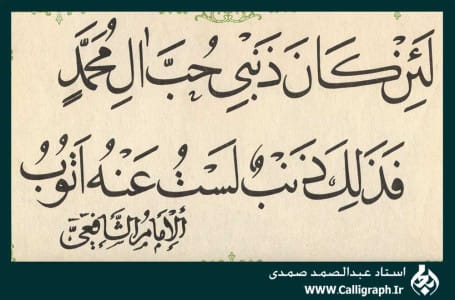 لَئِنْ كَانَ ذَنْبِي حُبَّ اٰلِ مُحَمَّدٍ
فَذٰلِكَ ذَنْبٌ لَسْتُ عَنْهُ اَتُوبُ
اَلْاِمَامُ الشَّافِعِيّ
استاد عبدالصمد صمدی
www.Calligraph.Ir